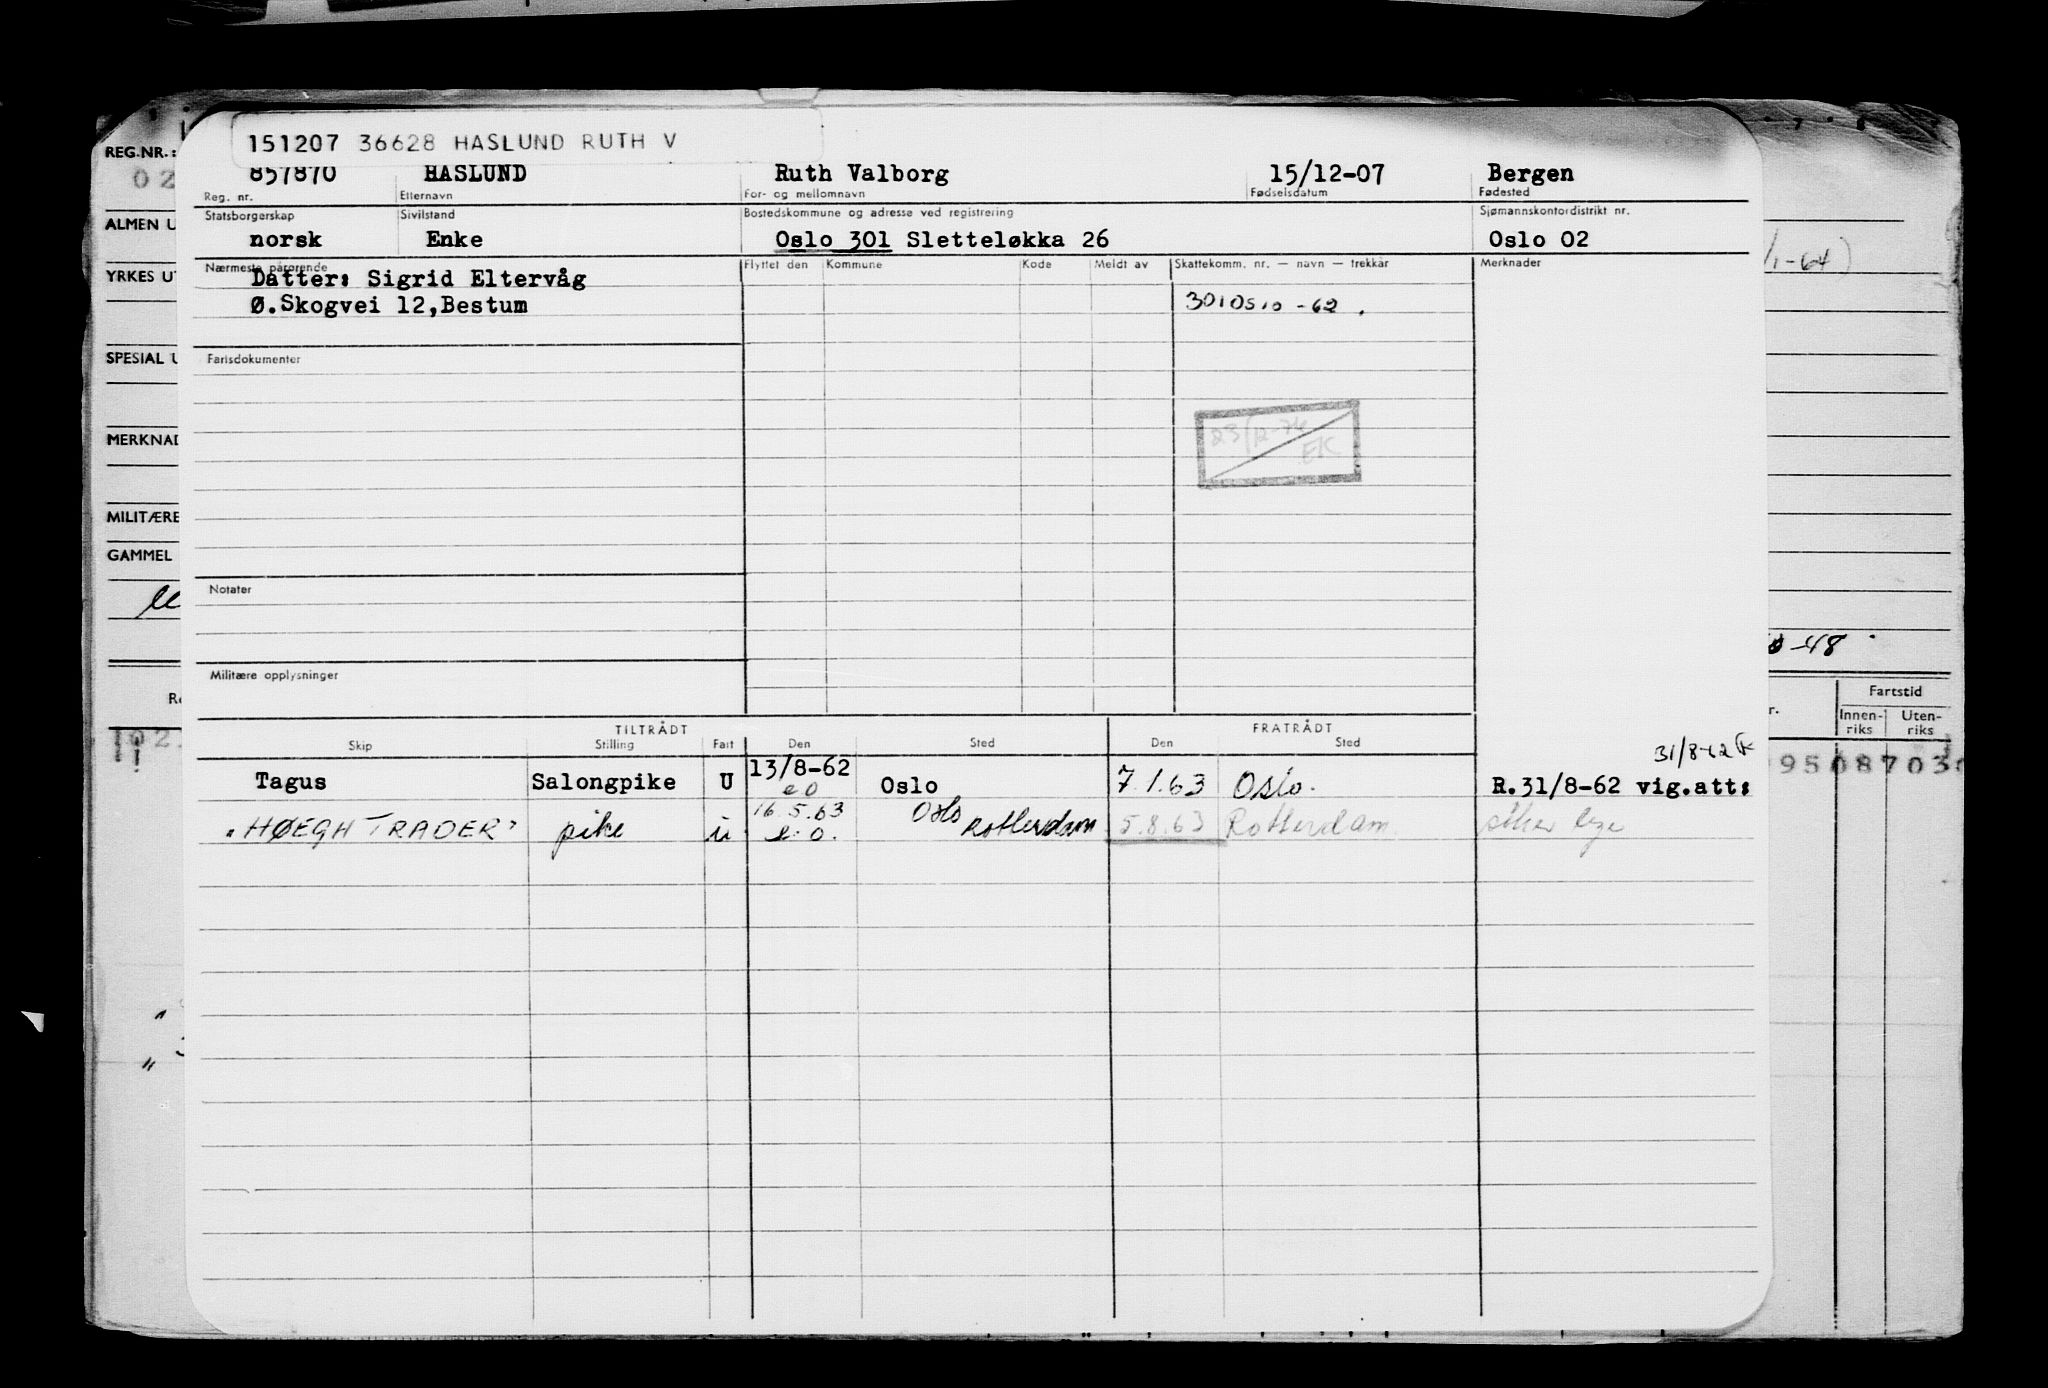 151207 36628 HASLUND RUTH V
REG.NR.:
02
857870 HASLUND Ruth Valborg 15/12-07 Bergen
Reg. nr. Etternavn For- og mellomnavn Fødselsdatum Fødested
ALMEN U
Statsborgerskap Sivilstand Bostedskommune og adresse ved registrering Sjømannskontordistrikt nr.
norsk Enke Oslo 301 Sletteløkka 26 Oslo 02
YRKES UT
/1-64)
Nærmeste pårørende Flyttet den Kommune Kode Meldt av Skattekomm. nr. — navn — trekkår Merknader
Datter: Sigrid Eltervåg
Ø.Skogvei 12,Bestum 301 Oslo -62
SPESIAL U
Fartsdokumenter
23/12-76
EK
MERKNAD
MILITÆRE
GAMMEL
Notater
-48
Militære opplysninger
Fartstid
r. Innen-riks Uten-riks
TILTRÅDT FRATRÅDT
Skip Stilling Fart Den Sted Den Sted
102
31/8-62
9508703
Tagus Salongpike U 13/8-62 Oslo 7.1.63 Oslo. R.31/8-62 vig.att:
eo
16.5.63 Oslo
"HØEGH TRADER" pike u e.o. Rotterdam 5.8.63 Rotterdam